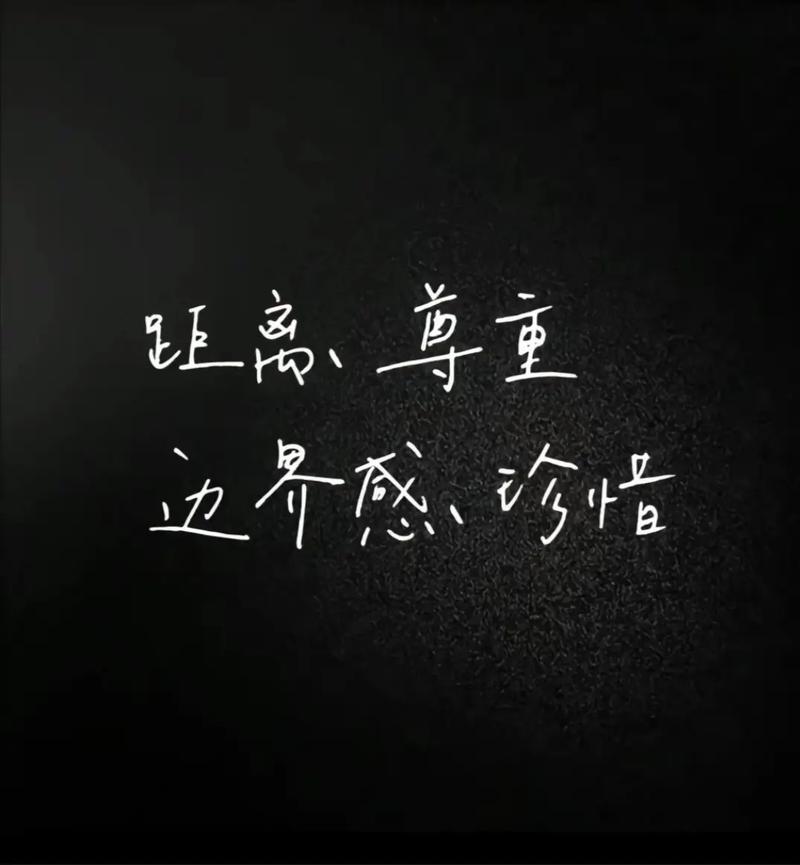 距离、尊重
边界感、珍惜